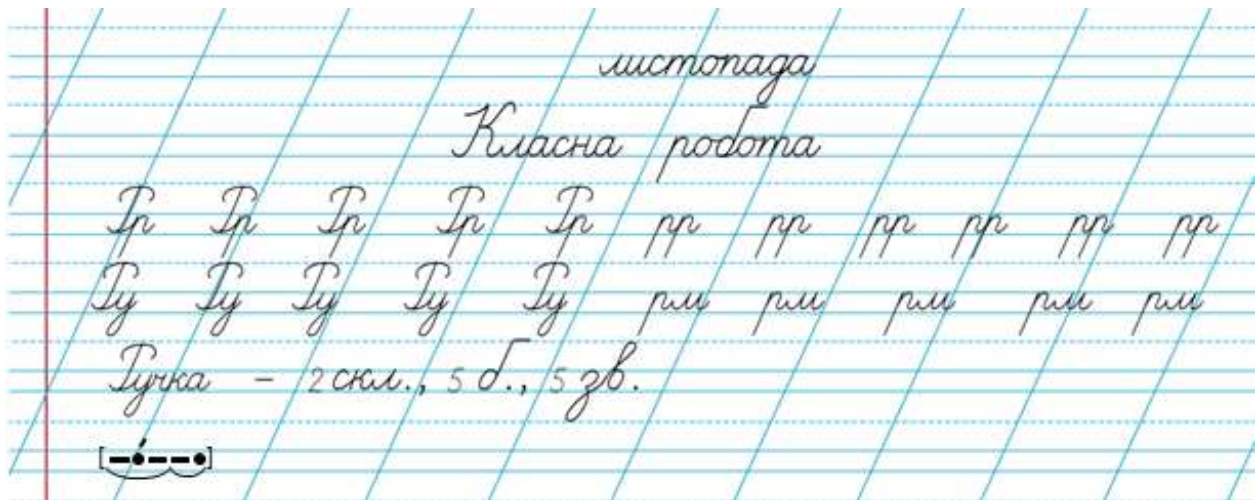 листопада
Класна робота
Рр Рр Рр Рр Рр рр рр рр рр рр рр
Ру Ру Ру Ру Ру рм рм рм рм рм
Ручка – 2 скл., 5 б., 5 зв.
[–•́––•]